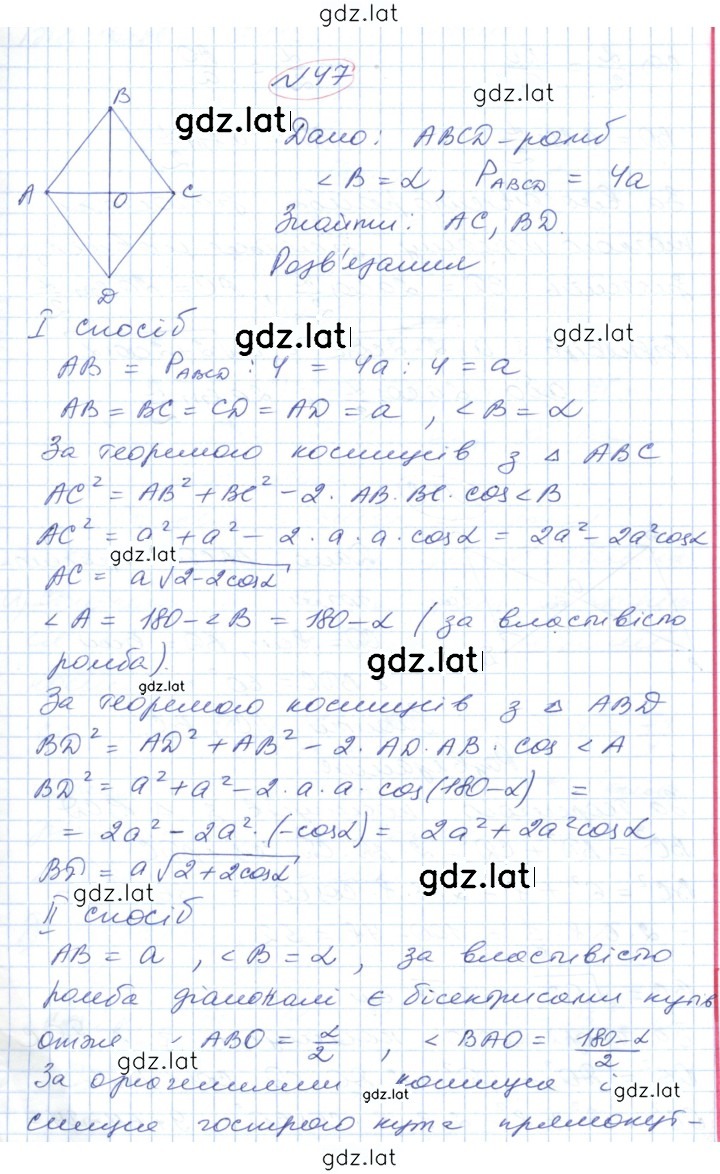 gdz.lat
N47
gdz.lat
gdz.lat
Дано: ABCD – ромб
∠B = α, P_ABCD = 4a
Знайти: AC, BD.
Розв'язання
B
A
O
C
D
I спосіб
gdz.lat
gdz.lat
AB = P_ABCD : 4 = 4a : 4 = a
AB = BC = CD = AD = a, ∠B = α
За теоремою косинусів з △ ABC
AC² = AB² + BC² – 2 · AB · BC · cos∠B
AC² = a² + a² – 2 · a · a · cosα = 2a² – 2a²cosα
gdz.lat
AC = a√2–2cosα
∠A = 180–∠B = 180–α (за властивістю
ромба).
gdz.lat
gdz.lat
За теоремою косинусів з △ ABD
BD² = AD² + AB² – 2 · AD · AB · cos ∠A
BD² = a² + a² – 2 · a · a · cos(180–α) =
= 2a² – 2a² · (–cosα) = 2a² + 2a²cosα
BD = a√2+2cosα
gdz.lat
gdz.lat
II спосіб
AB = a, ∠B = α, за властивістю
ромба діагоналі є бісектрисами кутів
отже ∠ABO = α/2, ∠BAO = 180–α/2
gdz.lat
За означеннями косинуса і
gdz.lat
gdz.lat
синуса гострого кута прямокут–
gdz.lat